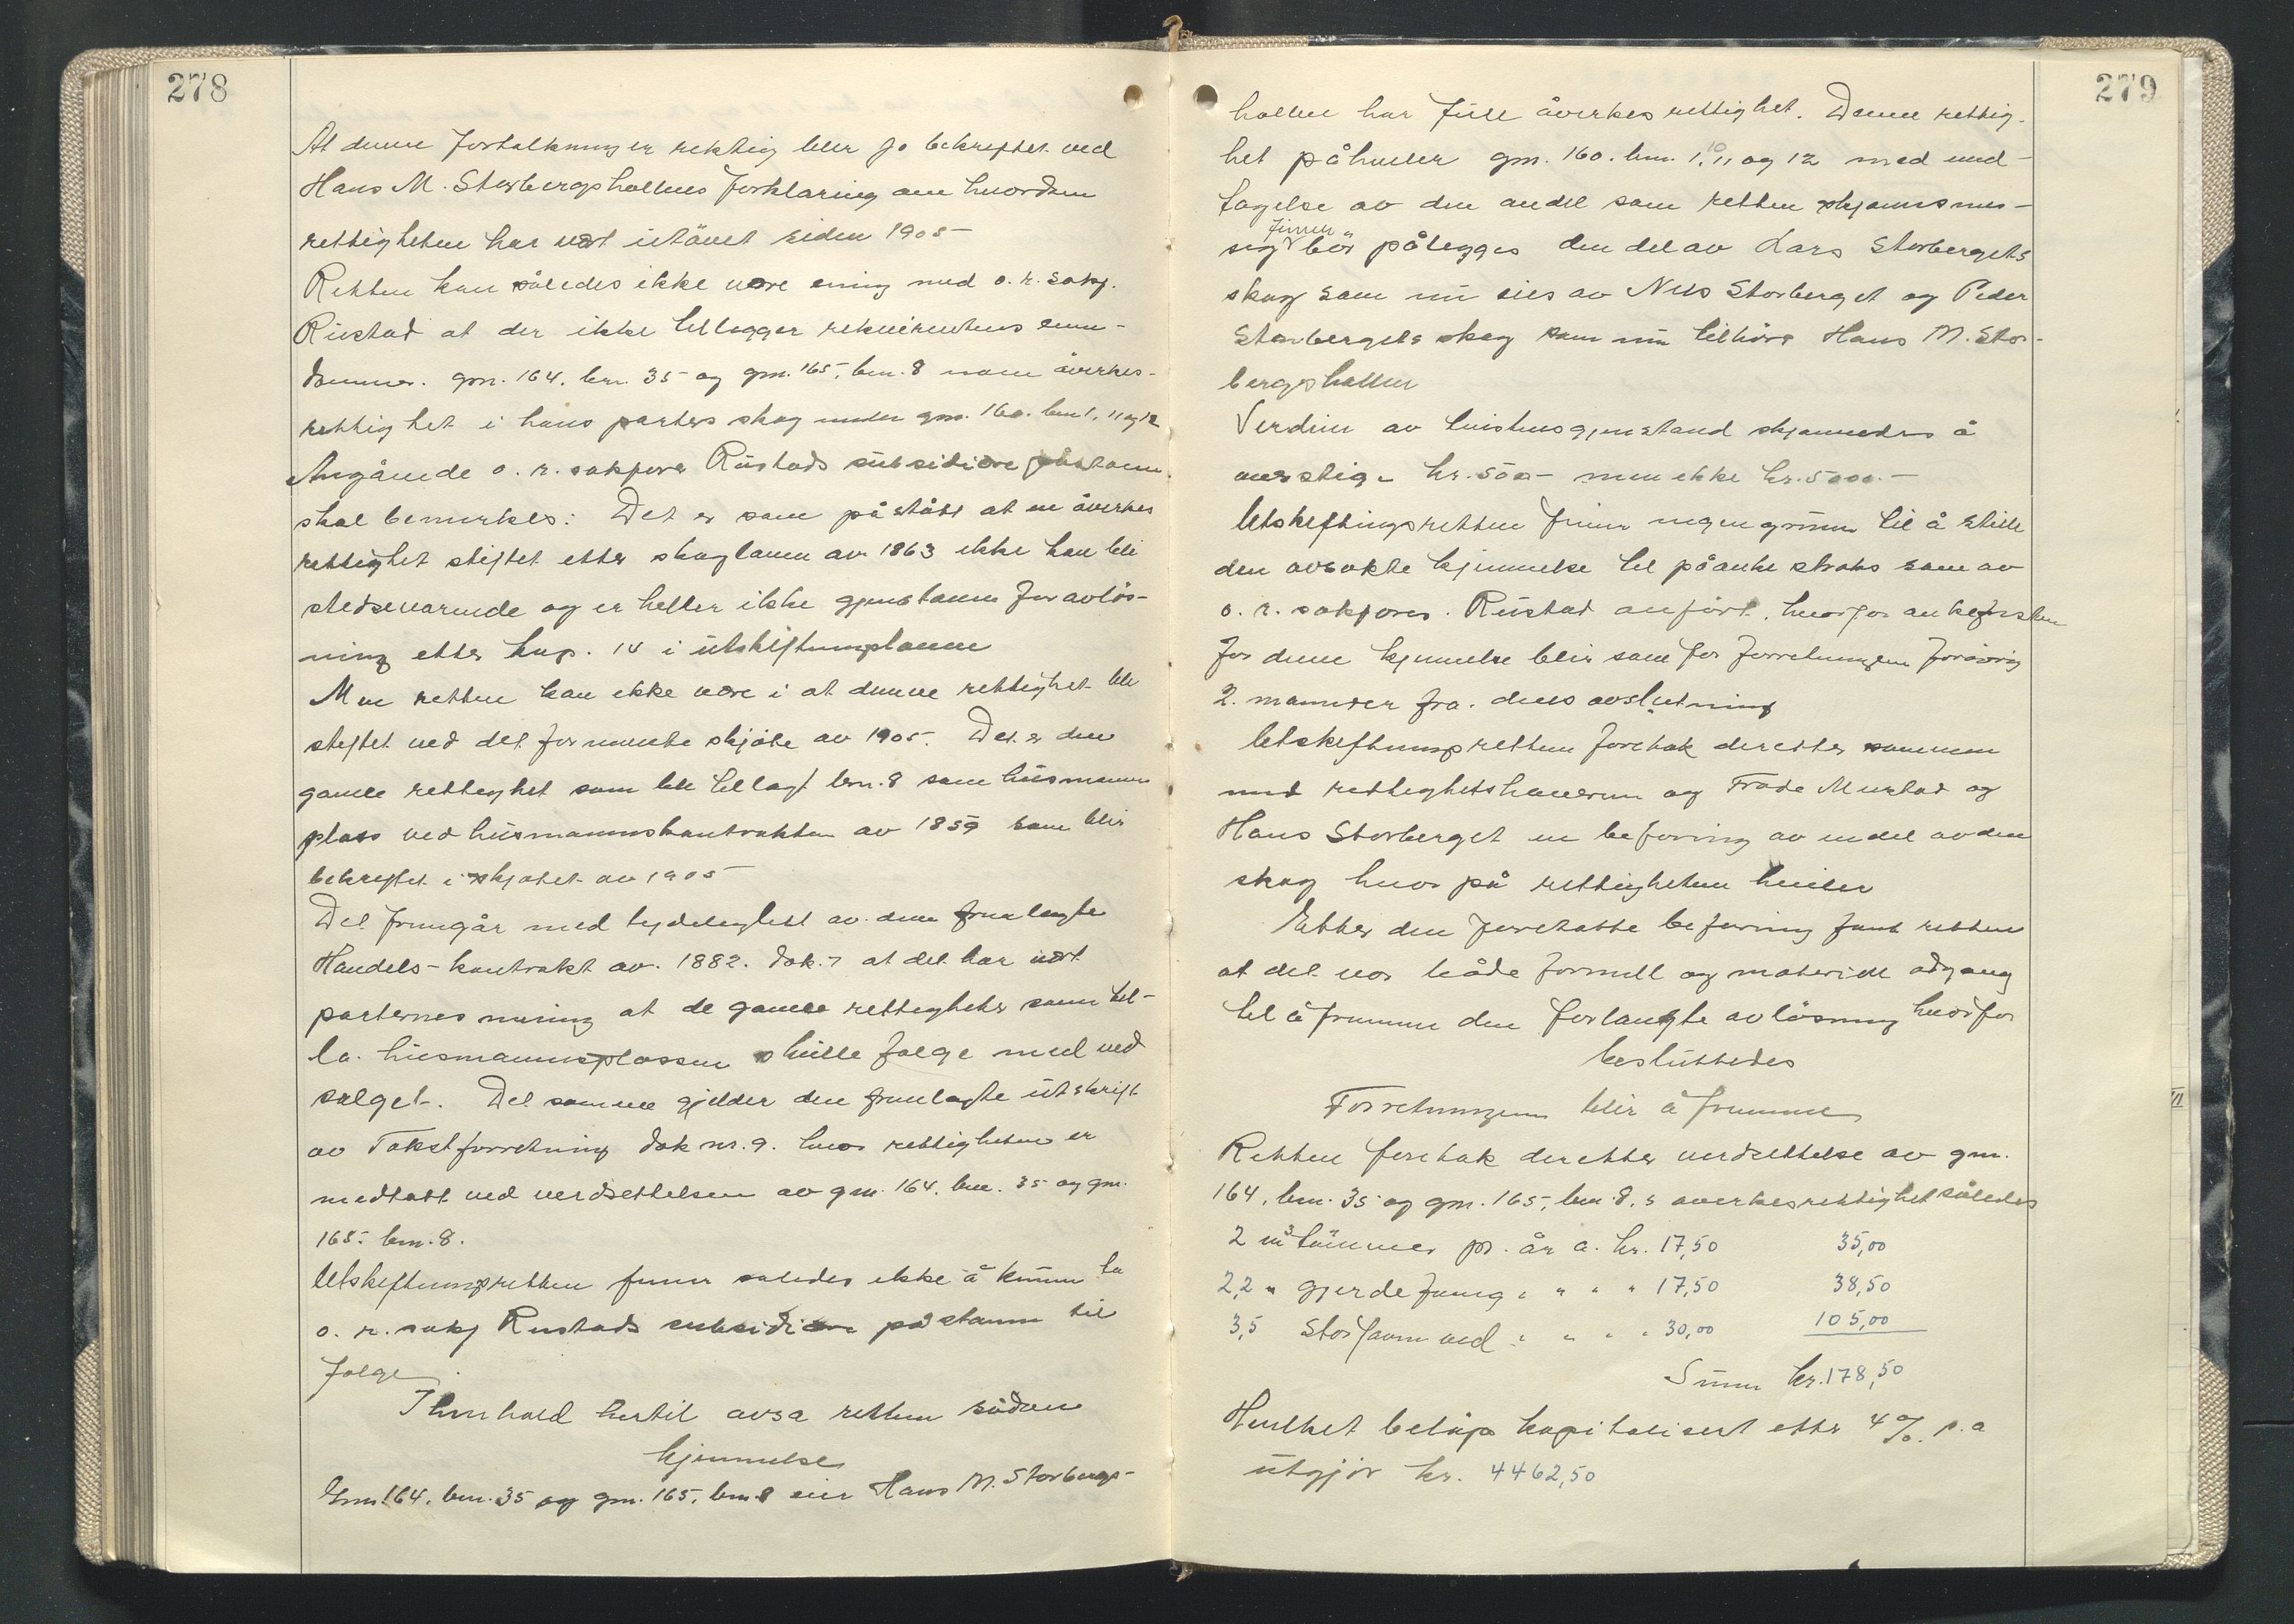 278
At denne fortolkning er riktig blir jo bekreftet ved
Hans M. Storbergshollens forklaring om hvordan
rettigheten har vært utövet siden 1905
Retten kan således ikke være ening med o. r. sakf.
Rustad at der ikke tillegger rekvirentens eien-
dommer. gnr. 164. bnr. 35 og gnr. 165, bnr. 8 noen åverkes-
rettighet i hans parters skog under gnr. 160. bnr 1, 11 og 12
Angående o. r. sakfører Rustads subsidiære påstann
skal bemerkes: Det er som påstått at en åverkes
rettighet stiftet etter skogloven av 1863 ikke kan bli
stedsevarende og er heller ikke gjenstann for avlös-
ning etter kap. 14 i utskiftningsloven
Men retten kan ikke være i at denne rettighet ble
stiftet ved det fornevnte skjöte av 1905. Det er den
gamle rettighet som ble tillagt bnr. 8 som husmanns
plass ved husmannskontrakten av 1859 som blir
bekreftet i skjøtet av 1905
Det fremgår med tydelighet av den fremlagte
Handels-kontrakt av. 1882. dok. 7 at det har vært
parternes mening at de gamle rettigheter som til-
lå husmannsplassen skulle følge med ved
salget. Det samme gjelder den fremlagte utskrift
av Takstforretning dok nr. 9. hvor rettigheten er
medtatt ved verdsettelsen av gnr. 164. bnr. 35 og gnr.
165. bnr. 8.
Utskiftningsretten finner således ikke å kunne ta
o. r. sakf Rustads subsidiære påstann til
følge
I henhold hertil avsa retten sådan
kjennelse
Gnr. 164. bnr. 35 og gnr. 165, bnr. 8 eier Hans M. Storbergs-
279
hollen har full åverkes rettighet. Denne rettig-
het påhviler gnr. 160. bnr. 1, 10 11 og 12 med und-
tagelse av den andel som retten skjønnsmes-
sig finner bör pålegges den del av Lars Storbergets
skog som nu eies av Nils Storberget og Peder
Storbergets skog som nu tilhörer Hans M. Stor-
bergshollen
Verdien av tvistens gjenstand skjønnedes å
overstige kr. 500- men ikke kr. 5000.-
Utskiftningsretten finner ingen grunn til å stille
den avsakte kjennelse til påanke straks som av
o. r. sakføres. Rustad anfört, hvorfor ankefristen
for denne kjennelse blir som for forretningen forövrig
2. måneder fra. dens avslutning
Utskiftningsretten foretok deretter sammen
med rettighetshaveren og Frode Mustad og
Hans Storberget en befaring av endel av den
skog hvor på rettigheten hviler
Etter den foretatte befaring fant retten
at det var både formell og materiell adgang
til å fremme den forlangte avlösning hvorfor
besluttedes
Forretningen blir å fremme
Retten foretok deretter verdsettelse av gnr.
164, bnr. 35 og gnr. 165, bnr. 8. s åverkesrettighet således
2 m³ tömmer pr. år a. kr. 17,50 35,00
2,2 " gjerdefang " " " " 17,50 38,50
3,5 Storfavn ved " " " " 30,00 105,00
Sum kr. 178,50
Hvilket belöp kapitalisert etter 4 % p. a
utgjör kr. 4462,50